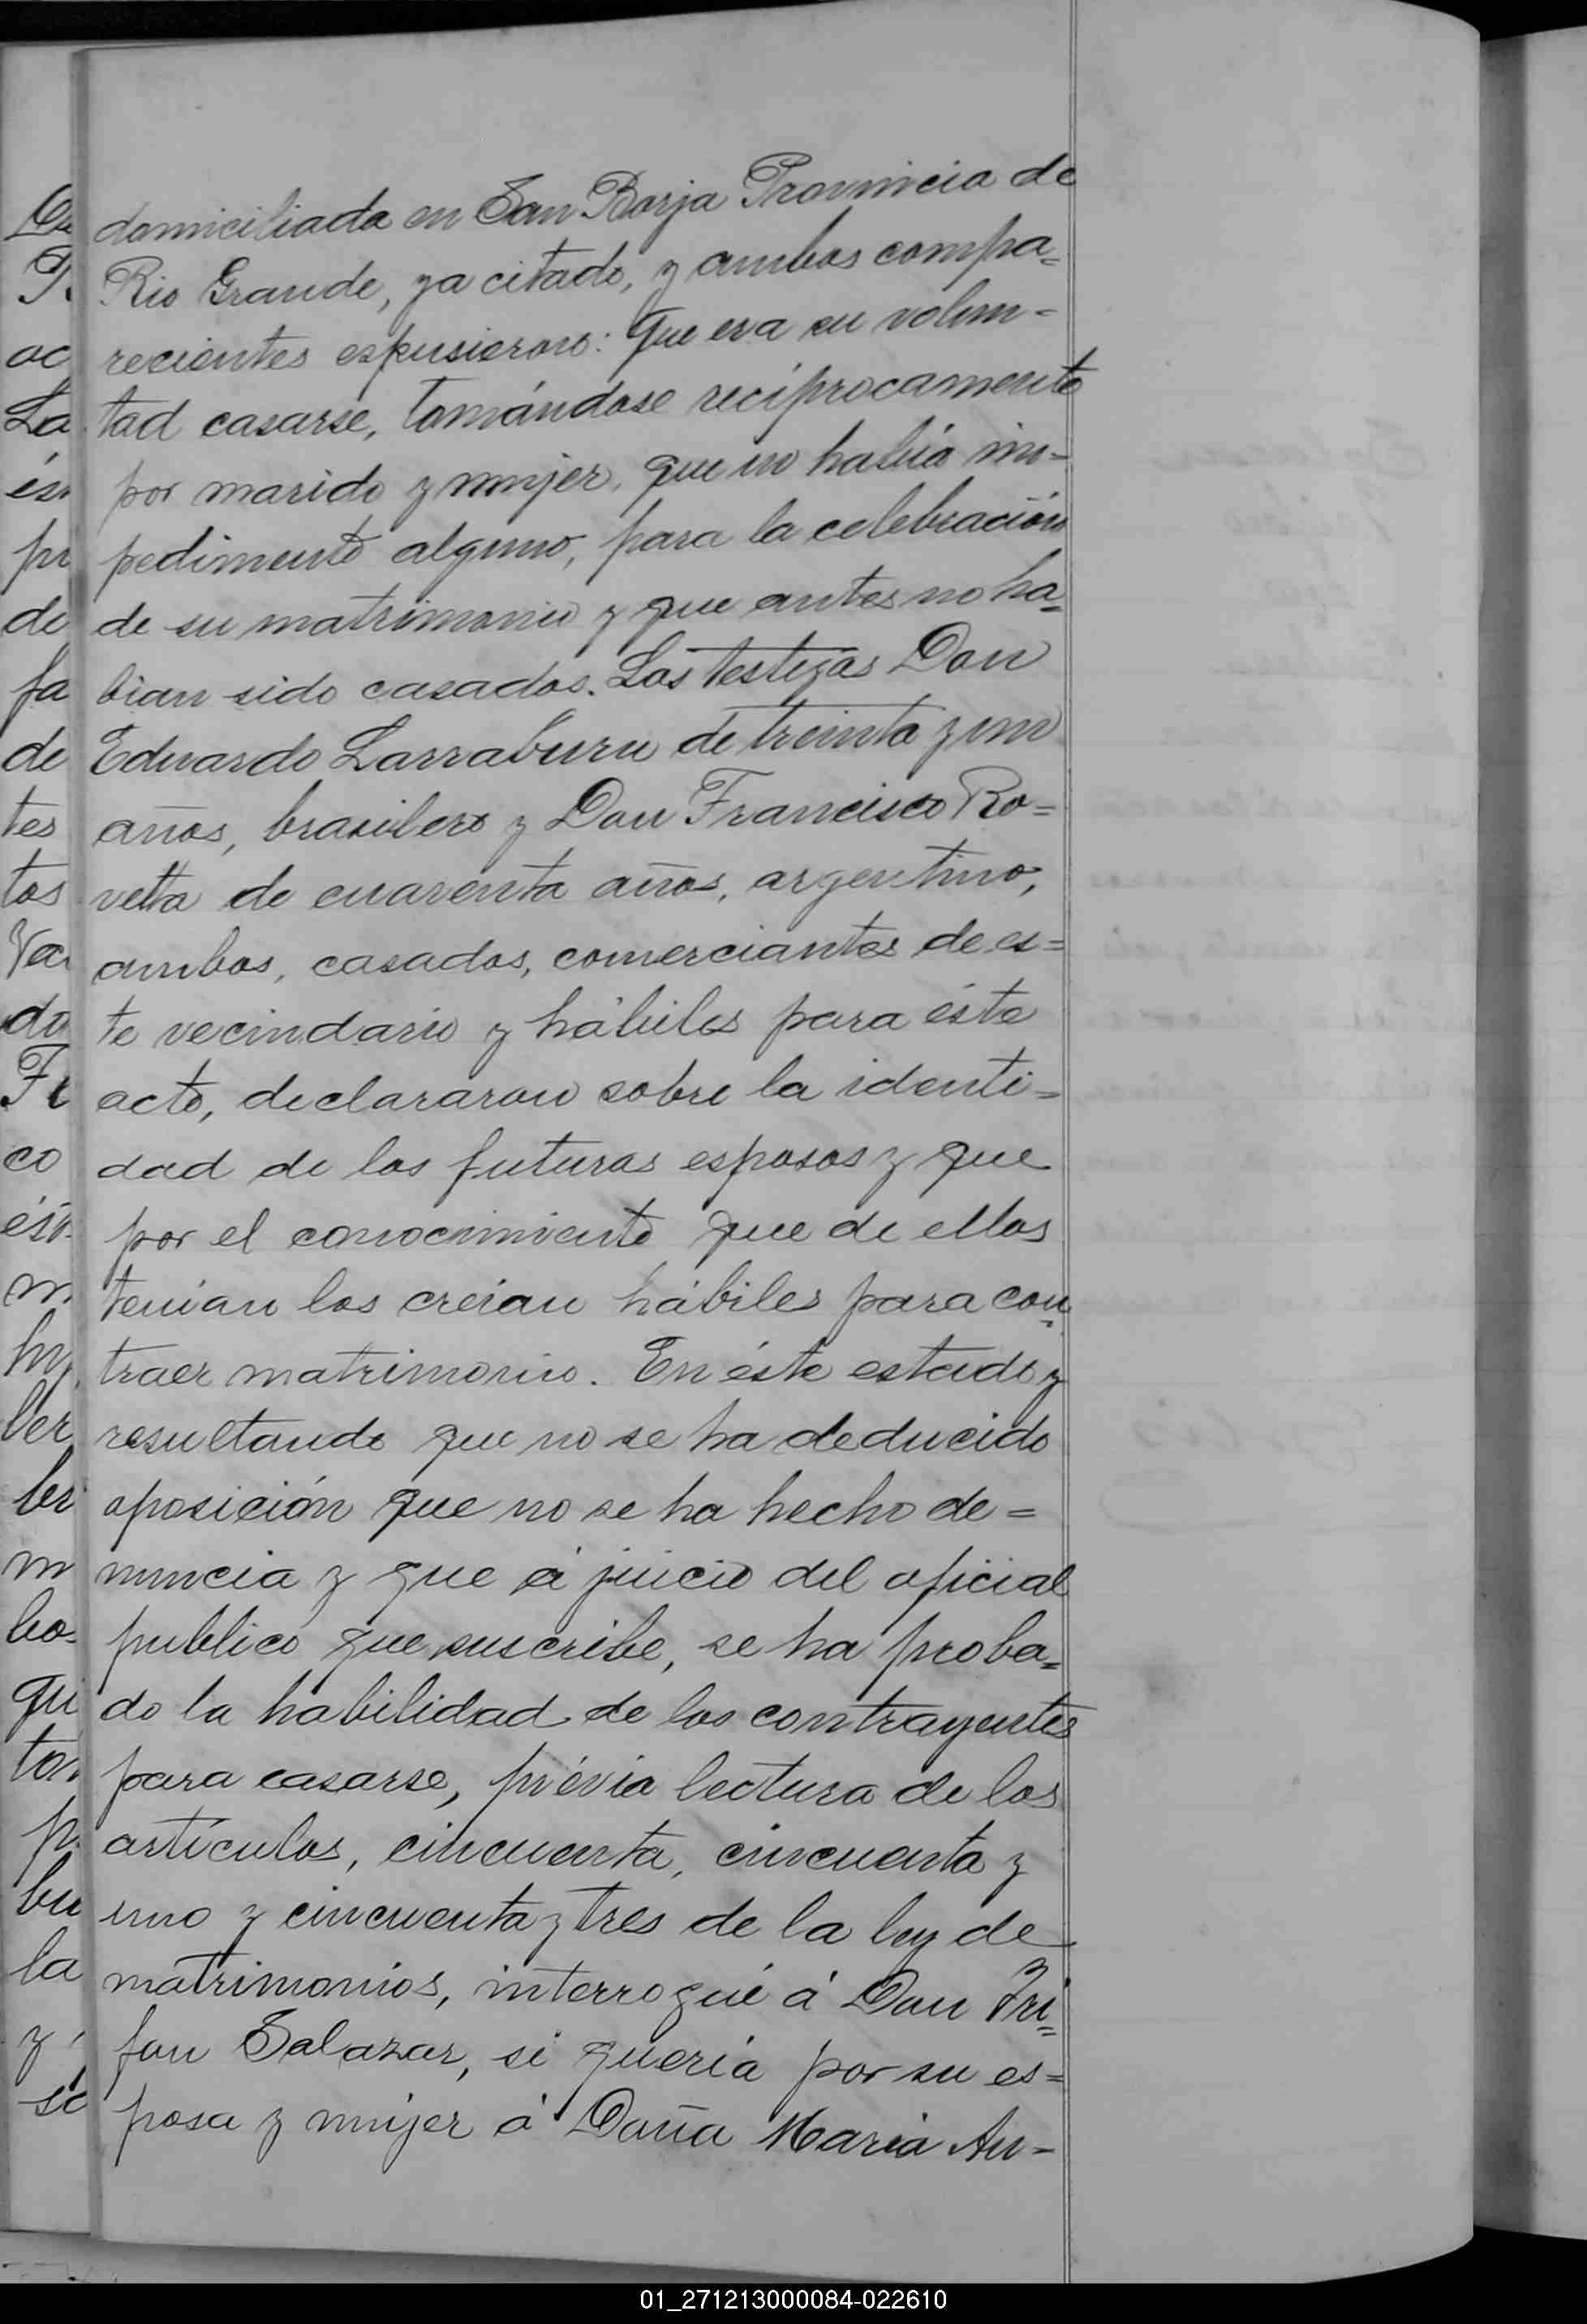 domiciliada en San Borja Provincia de
Rio Grande, ya citado, y ambos compa=
recientes espusieron: Que era su volun-
tad casarse, tomándose recíprocamente
por marido y mujer, que no había im-
pedimento alguno, para la celebración
de su matrimonio y que antes no ha=
bian sido casados. Los testigos Don
Eduardo Larraburu de treinta y un
años, brasilero y Don Francisco Ro=
vetta de cuarenta años, argentino,
ambos, casados, comerciantes de es=
te vecindario y hábiles para éste
acto, declararon sobre la identi=
dad de los futuros esposos y que
por el conocimiento que de ellos
tenian los creian hábiles para con=
traer matrimonio. En éste estado y
resultando que no se ha deducido
oposición que no se ha hecho de=
nuncia y que á juicio del oficial
publico que suscribe, se ha proba=
do la habilidad de los contrayentes
para casarse, prévia lectura de los
artículos, cincuenta, cincuenta y
uno y cincuenta y tres de la ley de
matrimonios, interrogué á Don Tri=
fon Salazar, si quería por su es=
posa y mujer á Doña María An-
01_271213000084-022610